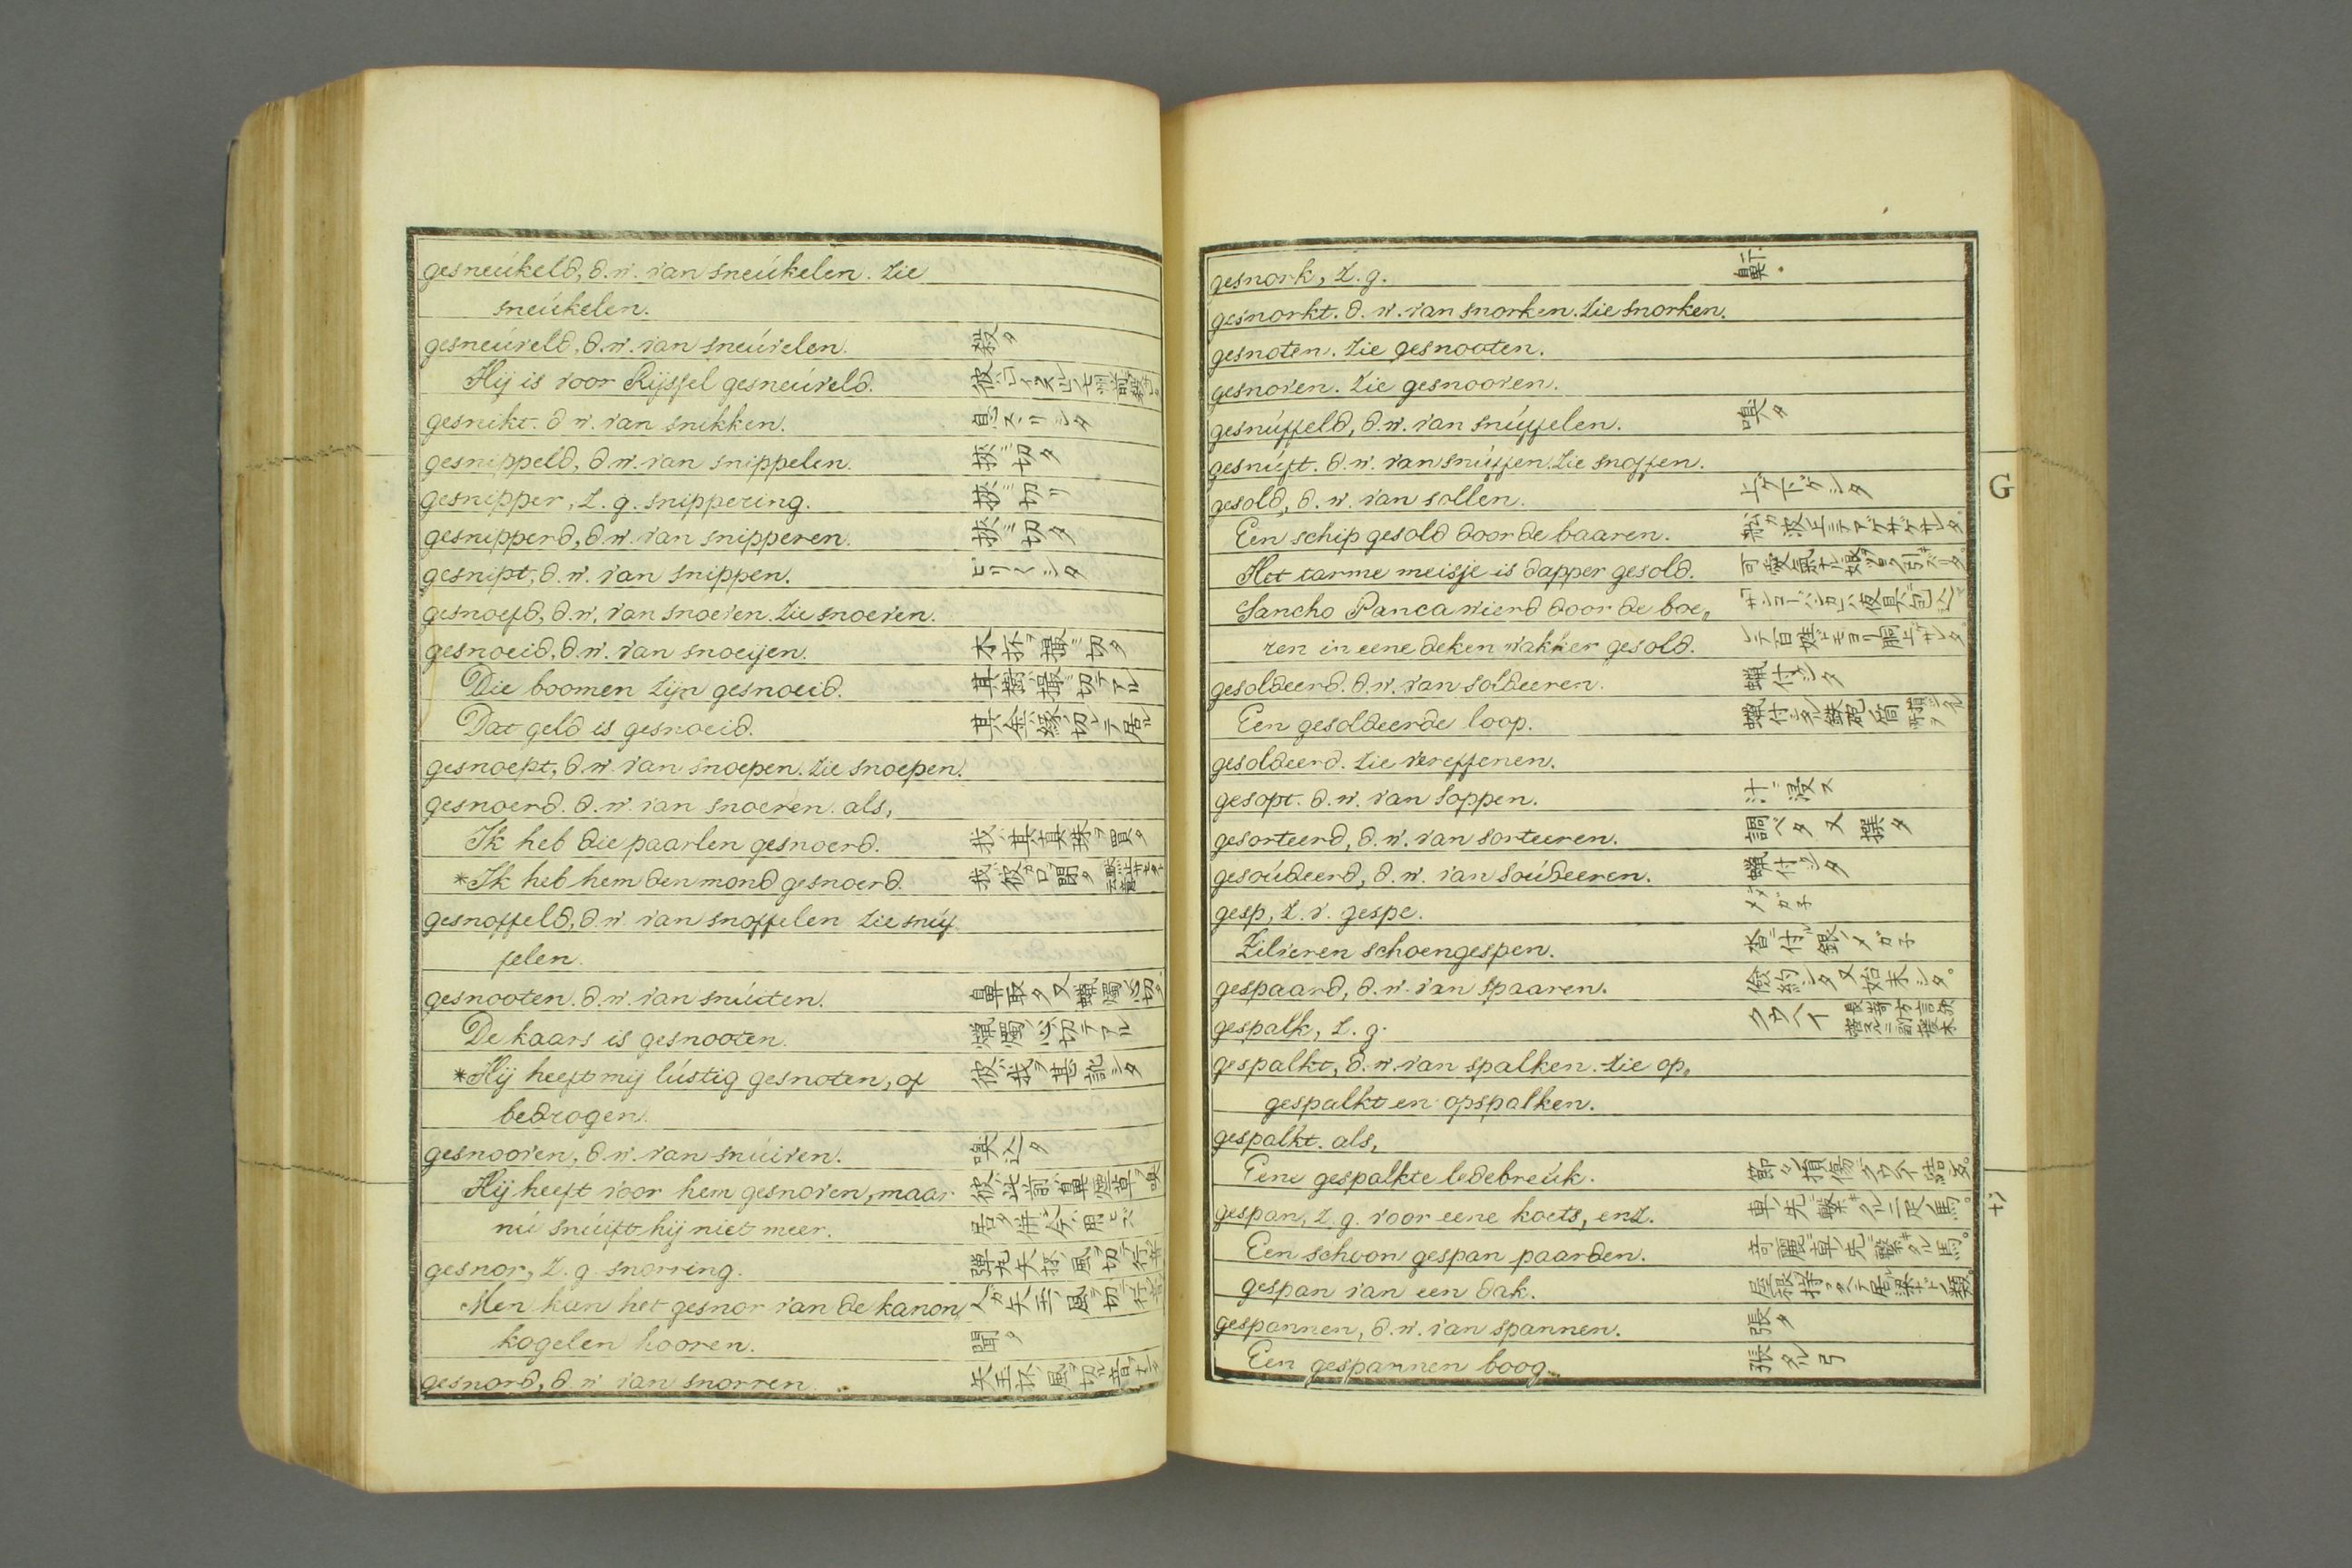 gesneúkeld, d.w. van sneúkelen. Zie
sneúkelen.
gesneúveld, d.w. van sneúvelen. 殺タ
Hij is voor Rijssel gesneúveld.
gesnikt. d.w. van snikken.
gesnippeld, d.w. van snippelen. 挾ミ切タ
gesnipper, z.g. snippering. 挾ミ切リ
gesnipperd, d.w. van snipperen. 挾ミ切タ
gesnipt, d.w. van snippen.
gesnoefd, d.w. van snoeven. Zie snoeven.
gesnoeid, d.w. van snoeijen. 木抔ヲ撮ミ切タ
Die boomen zijn gesnoeid. 其樹ハ撮ミ切テアル
Dat geld is gesnoeid. 其金ハ縁切レテ居ル
gesnoept, d.w. van snoepen. Zie snoepen.
gesnoerd. d.w. van snoeren. als,
Ik heb die paarlen gesnoerd. 我ハ其真珠ヲ買タ
*Ik heb hem den mond gesnoerd.
gesnoffeld, d.w. van snoffelen Zie snúf
felen.
gesnooten. d.w. van snúiten. 鼻取タ又蠟燭ノ心切タ
De kaars is gesnooten. 蠟燭ノ心切テアル
*Hij heeft mij lústig gesnoten, of 彼ハ我ヲ甚訛シタ
bedrogen.
gesnooven, d.w. van snúiven. 嗅込タ
Hij heeft voor hem gesnoven, maar 彼ハ此前ハ鼻煙草ヲ嗅
nú snúift hij niet meer.
gesnor, z.g. snorring. 弾丸矢抔ノ風ヲ切テ行音
Men kan het gesnor van de kanon,
kogelen hooren. 聞タ
gesnord, d.w. van snorren.
gesnork, z.g. 鼾.
gesnorkt. d.w. van snorken. Zie snorken.
gesnoten. Zie gesnooten.
gesnoven. Zie gesnooven.
gesnúffeld, d.w. van snúffelen. 嗅タ
gesnúft. d.w. van snúffen. Zie snoffen.
gesold, d.w. van sollen. 上ケ下ケシタ
Een schip gesold door de baaren.
Het tarme meisje is dapper gesold.
Sancho Panca wierd door de boe„
ren in eene deken wakker gesold.
gesoldeerd. d.w. van soldeeren. 蠟付シタ
Een gesoldeerde loop.
gesoldeerd. Zie vereffenen.
gesopt. d.w. van soppen. 汁ニ浸ス
gesorteerd, d.w. van sorteeren. 調ベタ 又 撰タ
gesoúdeerd, d.w. van soúdeeren. 蠟付シタ
gesp, z.v. gespe. メガ子
Zilveren schoengespen. 沓ニ付ル銀ノメガ子
gespaard, d.w. van spaaren. 儉約シタ又始末シタ。
gespalk, z.g.
gespalkt, d.w. van spalken. Zie op„
gespalkt en opspalken.
gespalkt. als,
Eene gespalkte ledebreúk.
gespan, z.g. voor eene koets, enz. 車ノ先ニ繋キタル二疋ノ馬。
Een schoon gespan paarden. 奇麗ニ車ノ先ニ繋キタル馬。
gespan van een dak.
gespannen, d.w. van spannen. 張タ
Een gespannen boog. 張タル弓
G